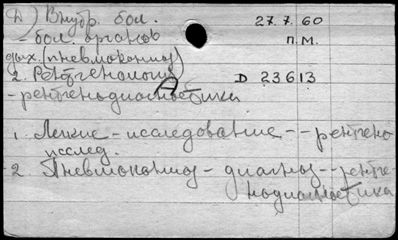 D) Внутр. бол. 27.7.60
- бол. органов п.м.
дых. (пневмокониоз)
2. Рентгенология D 23613
- рентгенодиагностика
1. Легкие - исследование -- рентгено
исслед.
2. Пневмокониоз - диагноз -- рентге-
нодиагностика